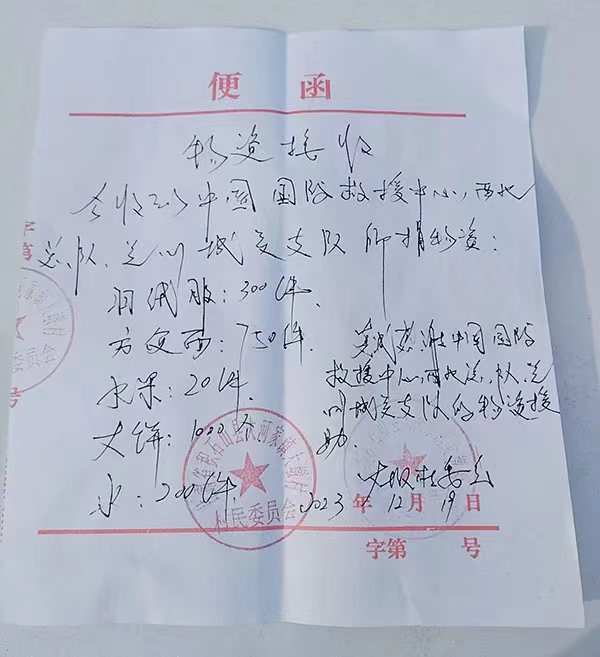 便函
物资接收
今收到中国国际救援中心,西北
总队,兰州城关支队所捐物资:
羽绒服:300件.
方便面:750件.
水果:20件.
大饼:1000个
水:200件
感谢中国国际
救援中心,西北总队,兰
州城关支队的物资援
助.
村委会
2023年12月19日
字第 号
积石山县大河家镇
村民委员会
字第
委员会
号